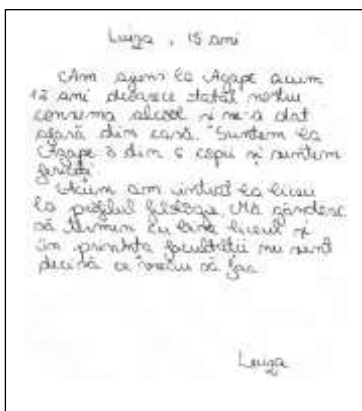 Luiza, 15 ani
Am ajuns la Agape acum
12 ani deoarece tatăl nostru
consuma alcool și ne-a dat
afară din casă. Suntem la
Agape 3 din 6 copii și suntem
fericiți.
Acum am intrat la liceu
la profilul filologie. Mă gândesc
să termin cu bine liceul și
în privința facultății nu sunt
decisă ce vreau să fac.
Luiza